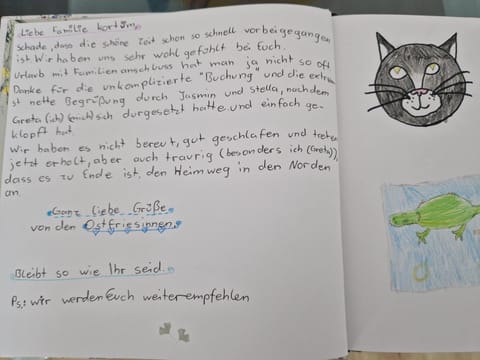 Liebe Familie Kortüm,
Schade, dass die schöne Zeit schon so schnell vorbei gegangen
ist. Wir haben uns sehr wohl gefühlt bei Euch.
Urlaub mit Familienanschluss hat man ja nicht so oft
Danke für die unkomplizierte "Buchung" und die extrem
st nette Begrüßung durch Jasmin und Stella, nachdem
Greta (ich) (mich) sich durgesetzt hatte und einfach ge-
klopft hat.
Wir haben es nicht bereut, gut geschlafen und treten
jetzt erholt, aber auch traurig (besonders ich (Greta)),
dass es zu Ende ist, den Heimweg in den Norden
an.
Ganz liebe Grüße
von den Ostfriesinnen.
Bleibt so wie Ihr seid.
Ps.: wir werden Euch weiterempfehlen